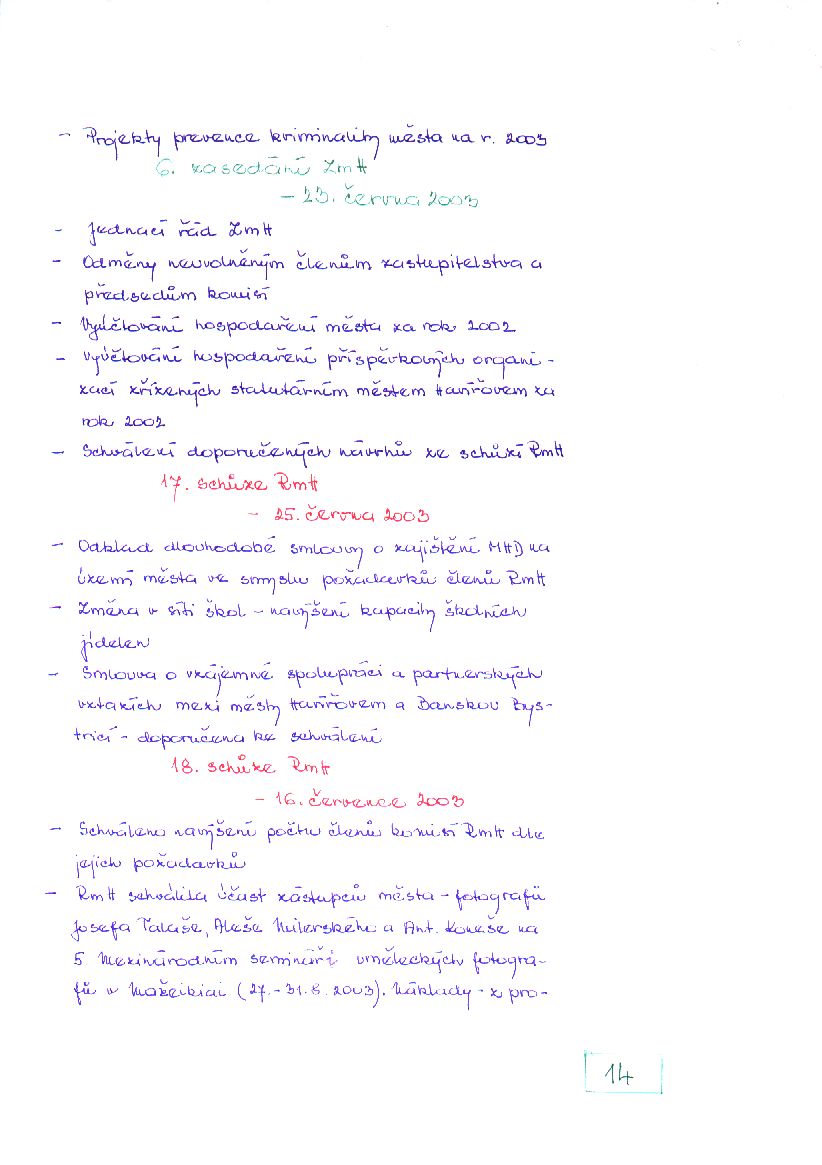 - Projekty prevence kriminality města na r. 2003
6. zasedání ZmH
- 23. června 2003
- Jednací řád ZmH
- Odměny neuvolněným členům zastupitelstva a
předsedům komisí
- Vyúčtování hospodaření města za rok 2002
- Vyúčtování hospodaření příspěvkových organi-
zací zřízených statutárním městem Havířovem za
rok 2002
- Schválení doporučených návrhů ze schůzí RmH
17. schůze RmH
- 25. června 2003
- Odklad dlouhodobé smlouvy o zajištění MHD na
území města ve smyslu požadavků členů RmH
- Změna v síti škol - navýšení kapacity školních
jídelen
- Smlouva o vzájemné spolupráci a partnerských
vztazích mezi městy Havířovem a Banskou Bys-
tricí - doporučena ke schválení
18. schůze RmH
- 16. července 2003
- Schváleno navýšení počtu členů komisí RmH dle
jejich požadavků
- RmH schválila účast zástupců města - fotografů
Josefa Talaše, Aleše Milerského a Ant. Koneše na
5 Mezinárodním semináři uměleckých fotogra-
fů v Mažeikiai (27.-31.8.2003). Náklady - z pro-
14